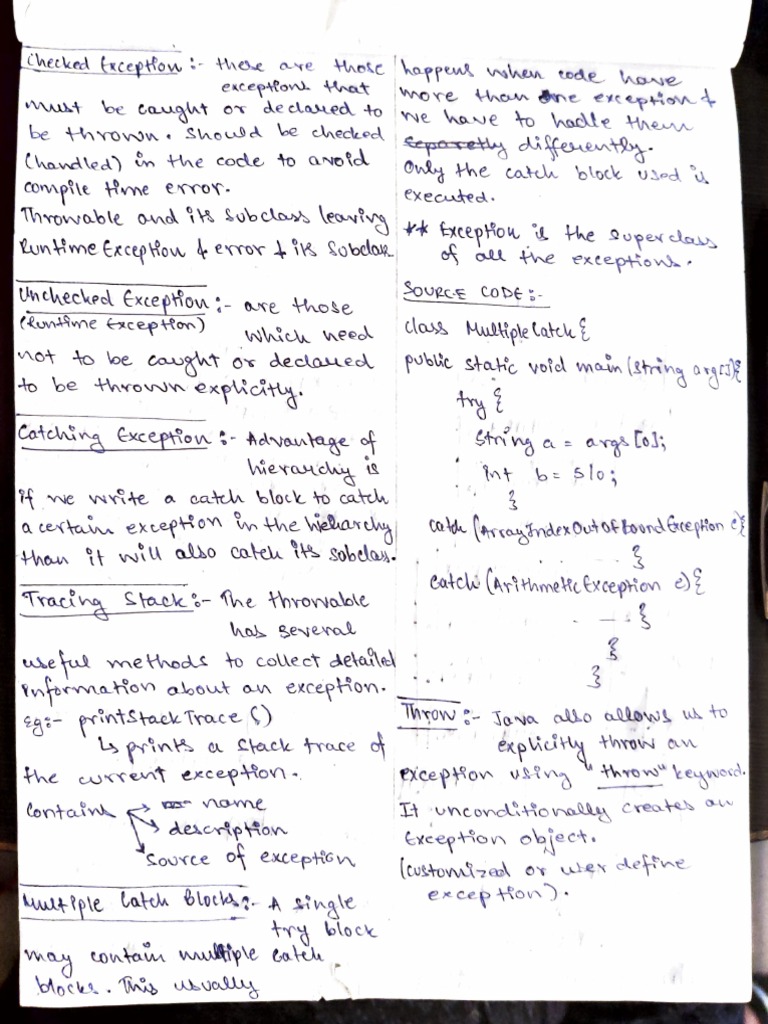 Checked Exception :- these are those
exceptions that
must be caught or declared to
be thrown. Should be checked
(handled) in the code to avoid
compile time error.
Throwable and its subclass leaving
Runtime Exception & error & its subclass
Unchecked Exception :- are those
(Runtime Exception) which need
not to be caught or declared
to be thrown explicitly.
Catching Exception :- Advantage of
hierarchy is
if we write a catch block to catch
a certain exception in the hieharchy
than it will also catch its subclas.
Tracing Stack :- The throwable
has several
useful methods to collect detailed
information about an exception.
Eg:- printStackTrace ()
↳ prints a stack trace of
the current exception.
contains → name
→ description
→ source of exception
Multiple Catch Blocks :- A single
try block
may contain multiple catch
blocks. This usually
happens when code have
more than one exception &
we have to hadle them
separetly differently.
Only the catch block used is
executed.
** Exception is the superclass
of all the exceptions.
SOURCE CODE :-
class MultipleCatch {
public static void main (String arg[]){
try {
String a = args [0];
int b = 5/0;
}
catch (ArrayIndexOutOfBoundException e){
}
catch (ArithmeticException e) {
}
}
}
Throw :- Java also allows us to
explicitly throw an
exception using "throw" keyword.
It unconditionally creates an
Exception object.
(customized or user define
exception).